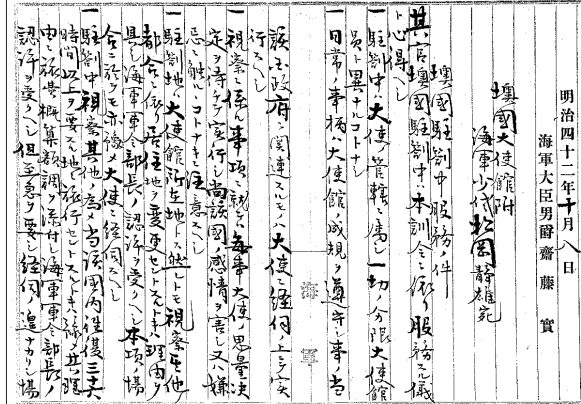 明治四十二年十月八日
海軍大臣男爵齋藤實
墺國大使館附
海軍少佐松岡靜雄宛
墺國駐劄中服務ノ件
其官墺國駐劄中ハ本訓令ニ依リ服務スル儀
ト心得ヘシ
一駐劄中ハ大使ノ管轄ニ屬シ一切ノ分限大使館
員ト異ナルコトナシ
一日常ノ事柄ハ大使館ノ成規ヲ遵守シ事ノ當
該國政府ニ關連スルモノハ大使ニ經伺ノ上之ヲ實
行スヘシ
一視察ニ係ル事項ニ就テハ每事大使ノ思量決
定ヲ待テ之ヲ實行シ尚該國ノ感情ヲ害シ又ハ嫌
忌ニ觸ルコトナキヲ注意スヘシ
一駐劄地ハ大使館所在地トス然レトモ視察其他ノ
都合ニ依リ居住地ヲ變更セントスルトキハ理由ヲ
具シ海軍軍令部長ノ認許ヲ受クヘシ本項ノ場
合ニ於テモ亦豫メ大使ニ經伺スヘシ
一駐劄中視察其他ノ爲メ當該國內往復三十六
時間以上ヲ要スル地ニ旅行セントスルトキハ豫メ其理
由ニ旅費概算額調ヲ添付シ海軍軍令部長ノ
認許ヲ受クヘシ但至急ヲ要シ經伺ノ遑ナカリシ場
海軍